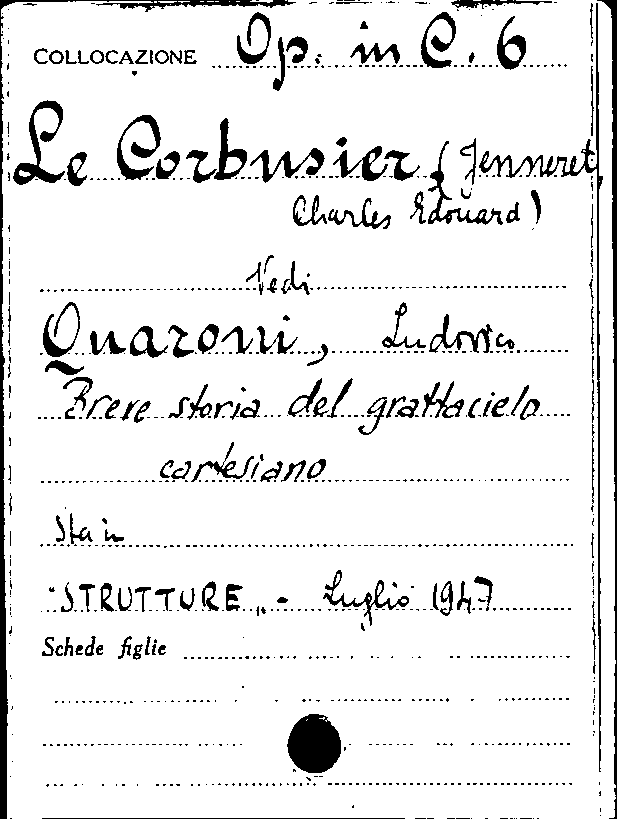 COLLOCAZIONE Op. in C. 6
Le Corbusier (Jenneret,
Charles Edouard)
Vedi
Quaroni, Ludovico
Breve storia del grattacielo
cartesiano
Sta in
"STRUTTURE„ - Luglio 1947
Schede figlie